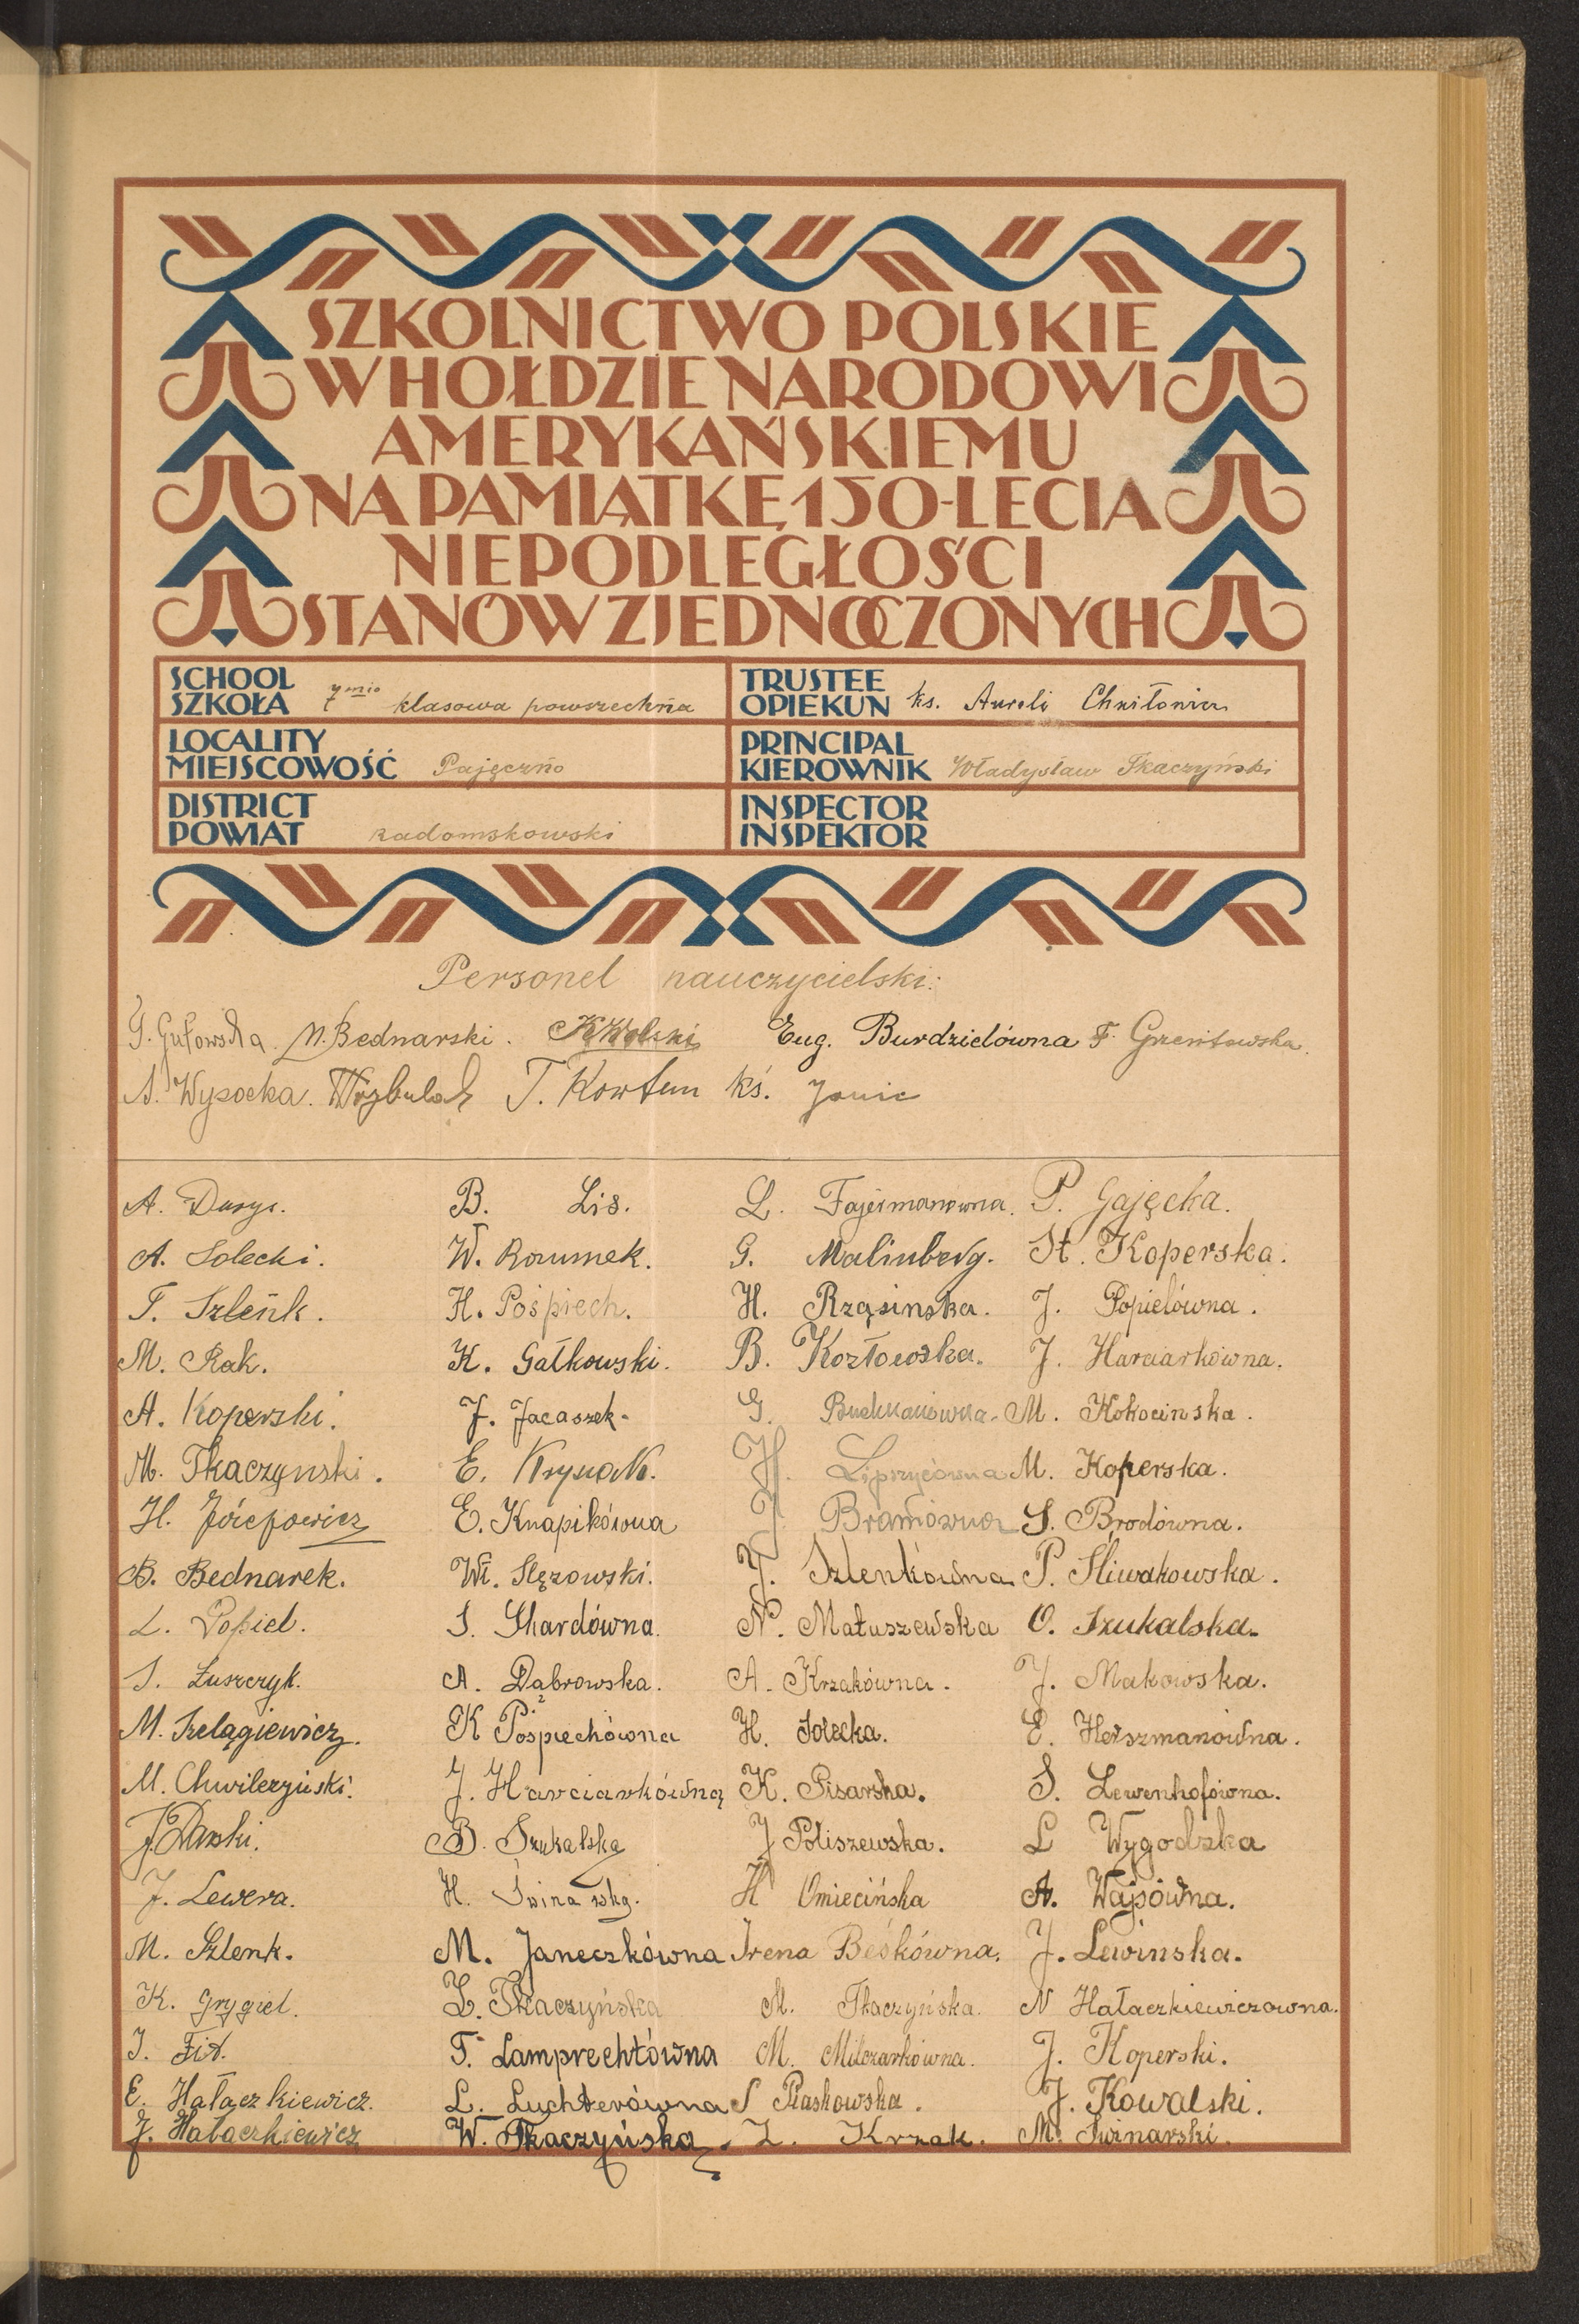 SZKOLNICTWO POLSKIE
W HOŁDZIE NARODOWI
AMERYKAŃSKIEMU
NA PAMIĄTKĘ 150-LECIA
NIEPODLEGŁOŚCI
STANÓW ZJEDNOCZONYCH
SCHOOL
SZKOŁA 7mio klasowa powszechna
TRUSTEE
OPIEKUN ks. Aureli Chwiłowicz
LOCALITY
MIEJSCOWOŚĆ Pajęczno
PRINCIPAL
KIEROWNIK Władysław Tkaczyński
DISTRICT
POWIAT radomskowski
INSPECTOR
INSPEKTOR
Personel nauczycielski:
G. Gutowska M. Bednarski. Eug. Burdzielówna F.
A. Wysocka. T. Kortum ks. Janic
A. Dusys. B. Lis. L. Fajermanówna. P. Gajęcka.
A. Solecki. W. Rozumek. G. Malinberg. St. Koperska.
T. Szlenk. H. Pośpiech. H. Rząsinska. J. Popielówna.
M. Rak. K. Gałkowski. B. Kozłowska. J. Harciarkówna.
A. Koperski. J. Jacaszek. G. M. Kokocinska.
M. Tkaczynski. E. Krysiak. H. Lipszycówna M. Koperska.
H. Józefowicz E. Knapikówna J. Bramówna S. Brodówna.
B. Bednarek. Wł. Ślęzowski. J. Szlenkówna P. Śliwakowska.
L. Popiel. S. Skardówna. N. Matuszewska O. Szukalska.
S. Łuszczyk. A. Dąbrowska. A. Krzakówna. J. Makowska.
M. Szelągiewicz. K Pośpiechówna H. Solecka. E. Herszmanówna.
M. Chwilczyński. J. Harciarkówna K. Pisarska. S. Lewenhofówna.
B. Szukalska J Poliszewska. L Wygodzka
J. Lewera. H. Świnarska. H Omiecińska A. Wajsówna.
M. Szlenk. M. Janeczkówna Irena Beśkówna. J. Lewinska.
K. Grygiel. Z. Tkaczyńska M. Tkaczyńska. N Hałaczkiewiczowna.
J. Fit. T. Lamprechtówna M. Milczarkówna. J. Koperski.
E. Hałaczkiewicz. L. Luchterówna S Piaskowska. J. Kowalski.
J. Hałaczkiewicz W. Tkaczyńska. Z. Krzak. M. Świnarski.